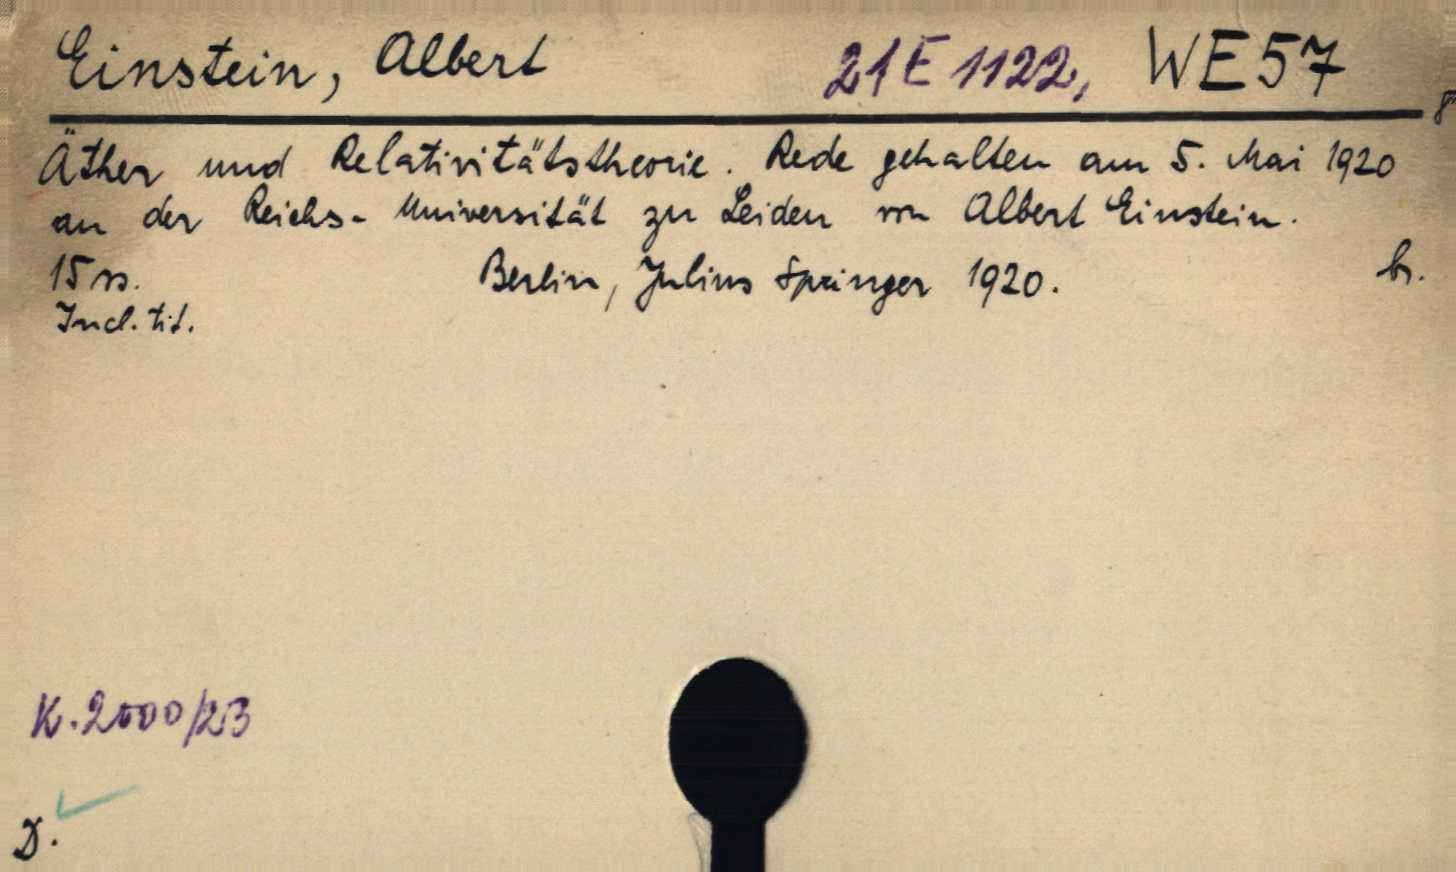 Einstein, Albert 21 E 1122, WE57
8
Äther und Relativitätstheorie. Rede gehalten am 5. Mai 1920
an der Reichs-Universität zu Leiden von Albert Einstein.
15 ss. Berlin, Julius Springer 1920. br.
Incl. tit.
K. 2000/23
D.